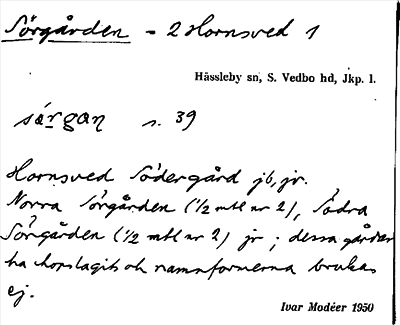 Sörgården - 2 Hornsved 1
Hässleby sn, S. Vedbo hd, Jkp. l.
sǿrgan s. 39
Hornsved Södergård jb, jr.
Norra Sörgården (1/2 mtl nr 2), Södra
Sörgården (1/2 mtl nr 2) jr; dessa gårdar
ha hopslagits och namnformerna brukas
ej.
Ivar Modéer 1950